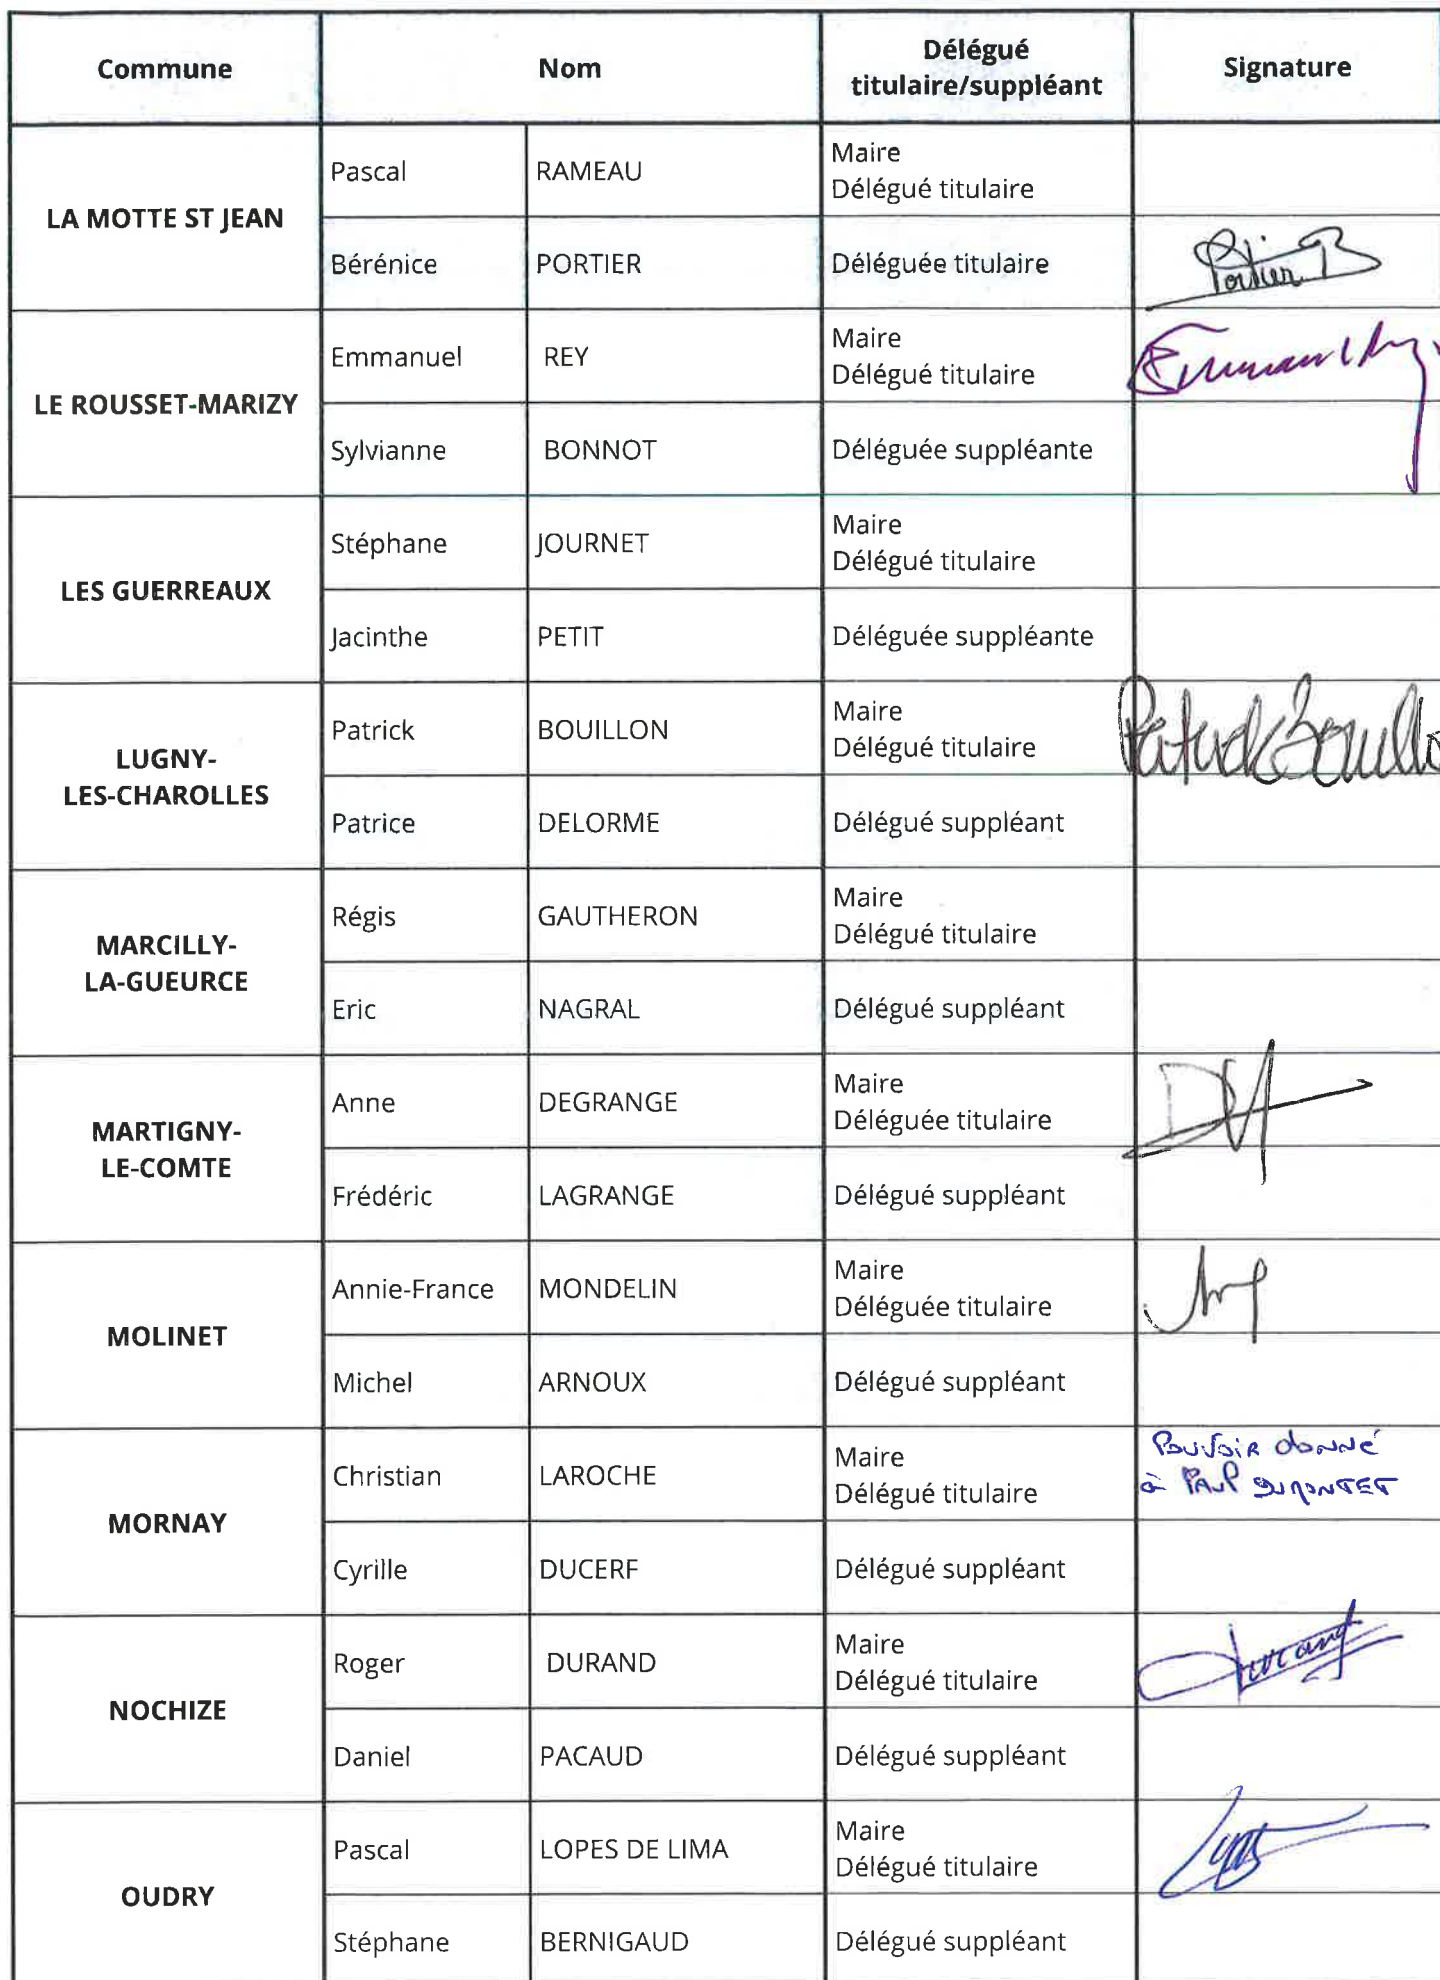 Commune Nom Délégué titulaire/suppléant Signature
LA MOTTE ST JEAN
Pascal RAMEAU Maire
Délégué titulaire
Bérénice PORTIER Déléguée titulaire Portier B
LE ROUSSET-MARIZY
Emmanuel REY Maire
Délégué titulaire Emmanuel Rey
Sylvianne BONNOT Déléguée suppléante
LES GUERREAUX
Stéphane JOURNET Maire
Délégué titulaire
Jacinthe PETIT Déléguée suppléante
LUGNY-
LES-CHAROLLES
Patrick BOUILLON Maire
Délégué titulaire Patrick Bouillo
Patrice DELORME Délégué suppléant
MARCILLY-
LA-GUEURCE
Régis GAUTHERON Maire
Délégué titulaire
Eric NAGRAL Délégué suppléant
MARTIGNY-
LE-COMTE
Anne DEGRANGE Maire
Déléguée titulaire
Frédéric LAGRANGE Délégué suppléant
MOLINET
Annie-France MONDELIN Maire
Déléguée titulaire
Michel ARNOUX Délégué suppléant
MORNAY
Christian LAROCHE Maire
Délégué titulaire
Pouvoir donné
à PAUL DUMONTET
Cyrille DUCERF Délégué suppléant
NOCHIZE
Roger DURAND Maire
Délégué titulaire Durand
Daniel PACAUD Délégué suppléant
OUDRY
Pascal LOPES DE LIMA Maire
Délégué titulaire
Stéphane BERNIGAUD Délégué suppléant